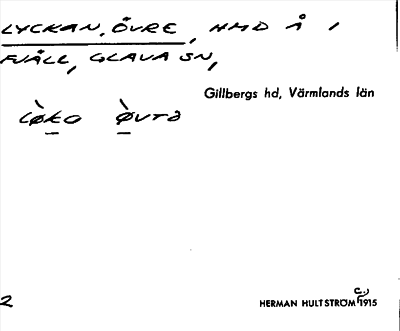 LYCKAN, ÖVRE, HMD Å I
FJÄLL, GLAVA SN,
Gillbergs hd, Värmlands län
2
HERMAN HULTSTRÖM C.) 1915